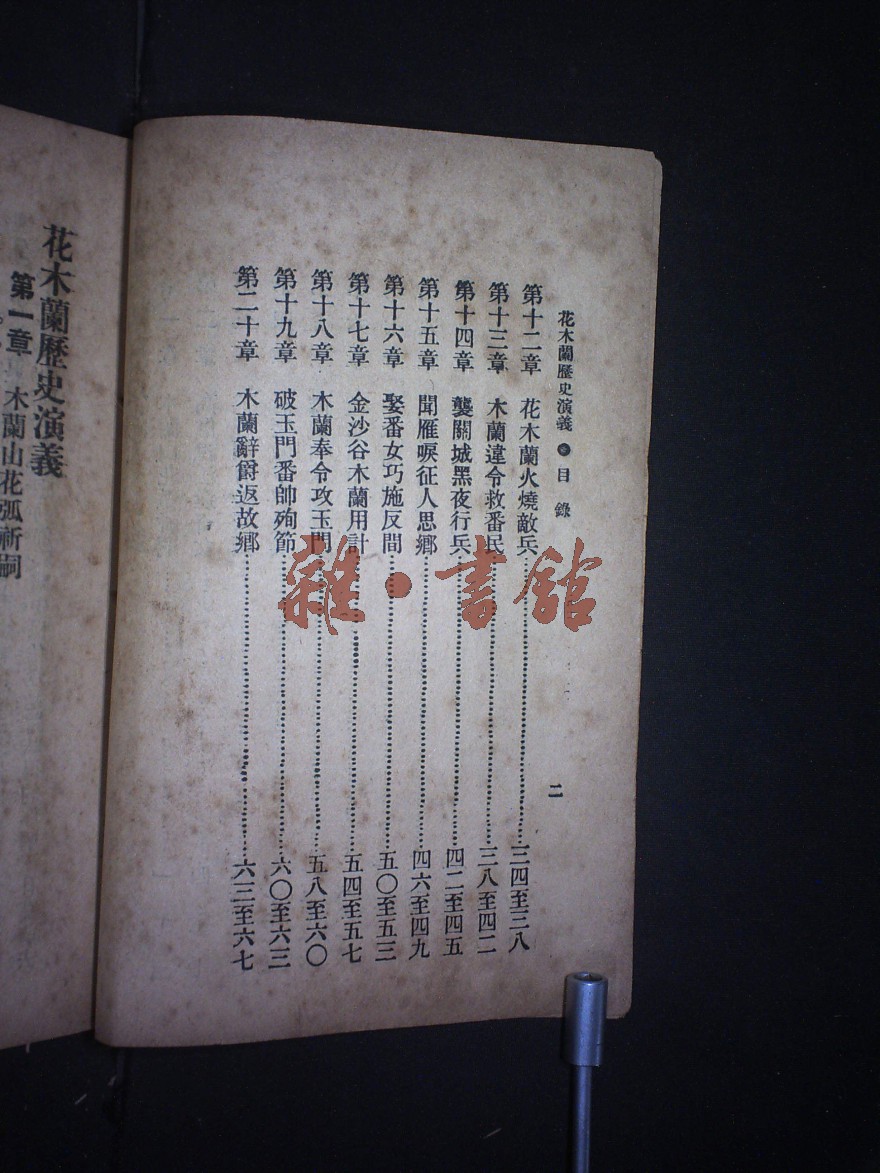 花木蘭歷史演義 目錄
二
第十二章 花木蘭火燒敵兵 三四至三八
第十三章 木蘭違令救番民 三八至四二
第十四章 襲關城黑夜行兵 四二至四五
第十五章 聞雁唳征人思鄉 四六至四九
第十六章 娶番女巧施反間 五〇至五三
第十七章 金沙谷木蘭用計 五四至五七
第十八章 木蘭奉令攻玉門 五八至六〇
第十九章 破玉門番帥殉節 六〇至六三
第二十章 木蘭辭爵返故鄉 六三至六七
花木蘭歷史演義
第一章 木蘭山花弧祈嗣
雜·書館